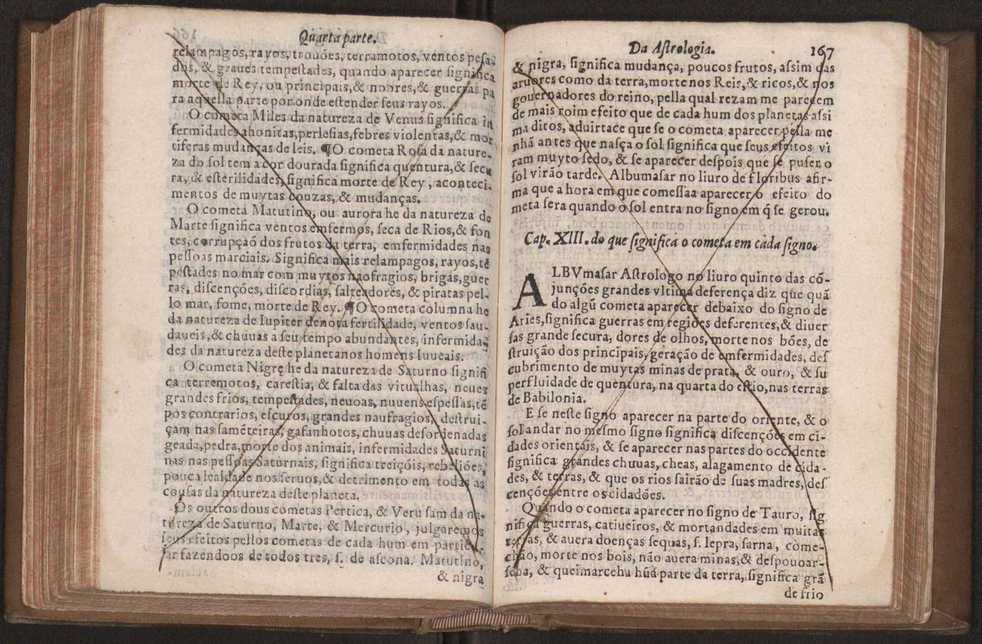 Quarta parte.
relampagos, rayos, trouões, terramotos, ventos pesa-
dos, & graues tempestades, quando aparecer significa
morte de Rey, ou principais, & nobres, & guerras pa
ra aquella parte por onde estender seus rayos.
O cometa Miles da natureza de Venus significa in
fermidades ahonitas, perlesias, febres violentas, & mor
tiferas mudanças de leis. ¶ O cometa Rosa da nature-
za do sol tem a cor dourada significa quentura, & secu
ra, & esterilidades, significa morte de Rey, aconteci-
mentos de muytas couzas, & mudanças.
O cometa Matutino, ou aurora he da natureza de
Marte significa ventos enfermos, seca de Rios, & fon
tes, corrupçaõ dos frutos da terra, emfermidades nas
pessoas marciais. Significa mais relampagos, rayos, tẽ
pestades no mar com muytos naofragios, brigas, guer
ras, discenções, discordias, salteadores, & piratas pel-
lo mar, fome, morte de Rey. ¶ O cometa columna he
da natureza de Iupiter denota fertilidade, ventos sau-
daueis, & chuuas a seu tempo abundantes, infermida-
des da natureza deste planeta nos homens Iuueais.
O cometa Nigrę he da natureza de Saturno signifi
ca terremotos, carestia, & falta das vitualhas, neues
grandes frios, tempestades, neuoas, nuuens espessas, tẽ
pos contrarios, escuros, grandes naufragios, destrui-
çam nas samẽteiras, gafanhotos, chuuas desordenadas
geada, pedra, morte dos animais, infermidades Saturni
nas nas pessoas Saturnais, significa treiçõis, rebeliões,
pouca lealdade nos seruos, & detrimento em todas as
cousas da natureza deste planeta.
Os outros dous cometas Pertica, & Veru sam da na-
tureza de Saturno, Marte, & Mercurio, julgaremos
seus efeitos pellos cometas de cada hum em particu-
lar fazendoos de todos tres, s. de ascona. Matutino,
& nigra
Da Astrologia. 167
& nigra, significa mudança, poucos frutos, assim das
aruores como da terra, morte nos Reis, & ricos, & nos
gouernadores do reino, pella qual rezam me parecem
de mais roim efeito que de cada hum dos planetas assi
ma ditos, aduirtace que se o cometa aparecer pella me
nhã antes que nasça o sol significa que seus efeitos vi
ram muyto sedo, & se aparecer despois que se puser o
sol virão tarde. Albumasar no liuro de floribus afir-
ma que a hora em que comessaa aparecer o efeito do
meta sera quando o sol entra no signo em q̃ se gerou.
Cap. XIII. do que significa o cometa em cada signo.
ALBVmasar Astrologo no liuro quinto das cõ-
junções grandes vltima deferença diz que quã
do algũ cometa aparecer debaixo do signo de
Aries, significa guerras em regiões deferentes, & diuer
sas grande secura, dores de olhos, morte nos bões, de
struição dos principais, geração de enfermidades, des
cubrimento de muytas minas de prata, & ouro, & su
perfluidade de quentura, na quarta do estio, nas terras
de Babilonia.
E se neste signo aparecer na parte do oriente, & o
sol andar no mesmo signo significa discenções em ci-
dades orientais, & se aparecer nas partes do occidente
significa grandes chuuas, cheas, alagamento de cida-
des, & terras, & que os rios sairão de suas madres, des
cenções entre os cidadões.
Quando o cometa aparecer no signo de Tauro, sig
nifica guerras, catiueiros, & mortandades em muitas
terras, & auera doenças sequas, s. lepra, sarna, come-
chão, morte nos bois, não auera minas, & despouoar-
seha, & queimarcehu hũa parte da terra, significa grã
de frio